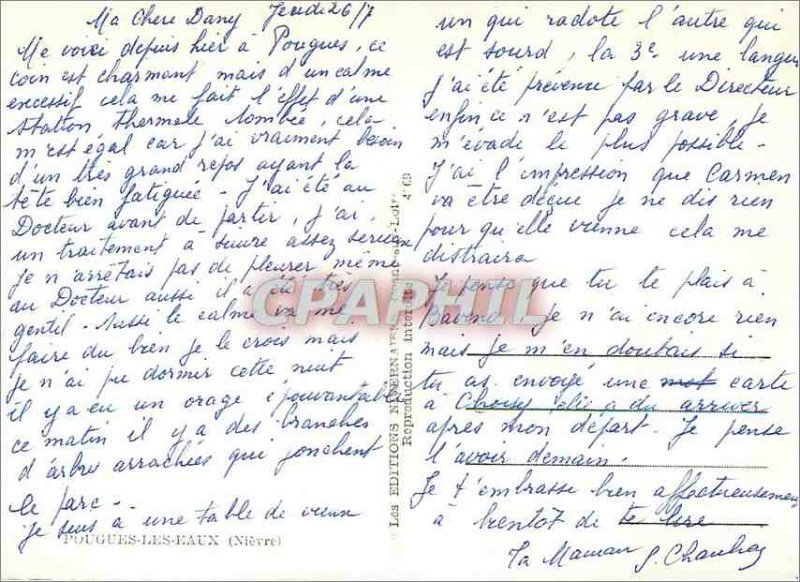 Ma Chere Dany Jeudi 26/7
Me voici depuis hier à Pougues, ce
coin est charmant mais d'un calme
excessif cela me fait l'effet d'une
station thermale tombée, cela
m'est égal car j'ai vraiment besoin
d'un très grand repos ayant la
tête bien fatiguée - J'ai été au
Docteur avant de partir, j'ai
un traitement à suivre assez serieux
Je n'arrêtais pas de pleurer même
au Docteur aussi il a été très
gentil - Aussi le calme va me
faire du bien je le crois mais
je n'ai pu dormir cette nuit
il y a eu un orage épouvantable
ce matin il y a des branches
d'arbres arrachées qui jonchent
le parc -
je suis à une table de vieux
POUGUES-LES-EAUX (Nièvre)
Les EDITIONS
Reproduction interdite 4.69
CPAPHIL
un qui radote l'autre qui
est sourd, la 3e une langue
j'ai été prévenue par le Directeur
enfin ce n'est pas grave, je
m'évade le plus possible -
J'ai l'impression que Carmen
va être déçue je ne dis rien
pour qu'elle vienne cela me
distraira
Je pense que tu te plais à
je n'ai encore rien
mais je m'en doutais si
tu as envoyé une carte
à Choisy elle a du arriver
après mon départ - Je pense
l'avoir demain.
Je t'embrasse bien affectueusement
à bientôt de te lire
Ta Maman